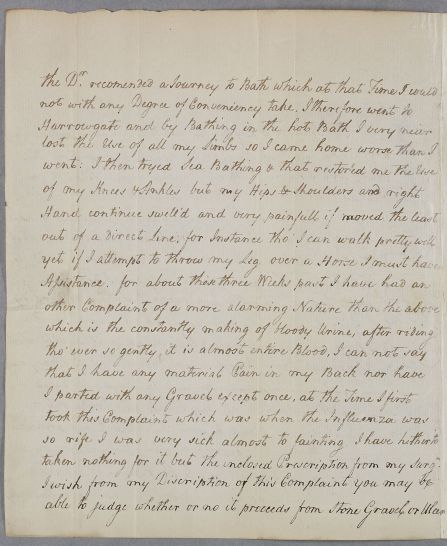 the Dr. recomended a Journey to Bath which at that Time I would
not with any Degree of Conveniency take. I therefore went to
Harrowgate and by Bathing in the hot Bath I very near
lost the Use of all my Limbs so I came home worse than I
went: I then tryed Sea Bathing & that restor'd me the Use
of my Knees & Ankles but my Hips & Shoulders and right
Hand continue swell'd and very painfull if moved the least
out of a direct Line; for Instance tho' I can walk pretty well
yet if I attempt to throw my Leg over a Horse I must have
Assistance. for about these three Weeks past I have had an
other Complaint of a more alarming Nature than the above
which is the constantly making of bloody Urine, after riding
tho' ever so gently, it is almost entire Blood, I can not say
that I have any material Pain in my Back nor have
I parted with any Gravel except once, at the Time I first
took this Complaint which was when the Influenza was
so rife I was very sick almost to fainting. I have hitherto
taken nothing for it but the inclosed Prescription from my Surgn.
I wish from my Discription of this Complaint you may be
able to judge whether or no it proceeds from Stone Gravel or Ulcer